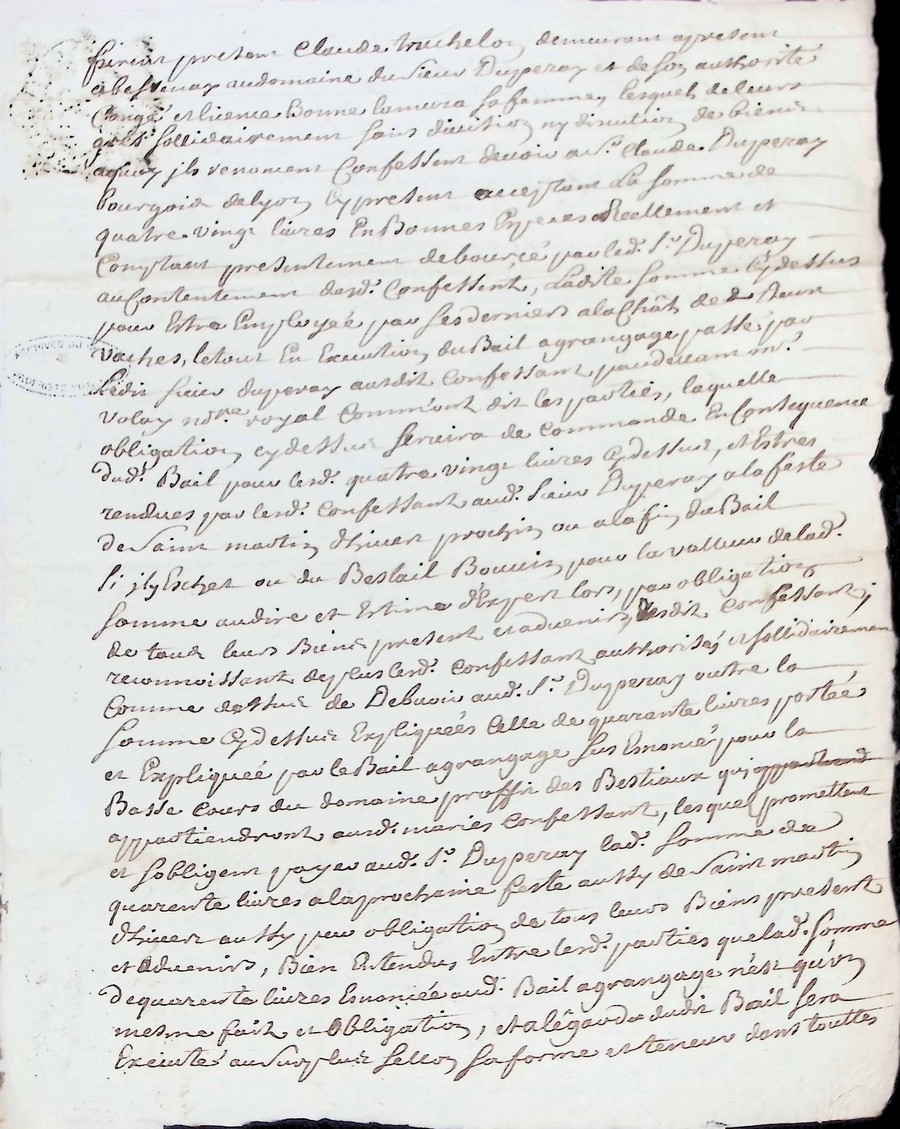 furent present Claude trichelon demeurant apresent
a bessenay audomaine du sieur Dujperay et de son authorité
Congé et licence Bonne lomura sa femme, lesquels de leurs
grés sollidairement sans division ny discution de biens
aquoy jls renoncent Confessent devoir a sr. Claude Dujperay
bourgois de lyon cy present acceptant La somme de
quatre vingt livres En Bonnes Especes Reellement et
Comptant presentement debourcé par led. Sr. Dujperay
au Contentement desd. Confessent, Ladite somme Cydessus
pour Estre Employée par ses derniers a la Chât de deux
vaches, le tout En Execution du Bail a grangage passé par
Ledit sieur dujperay ausdit confessant pardevant me.
Valoy nore. royal Comm'ont dit les parties, laquelle
obligation cy dessus servira de commande En Consequence
dud. Bail pour lesd. quatre vingt livres Cydessus, et Estres
rendues par lesd. confessant aud. sieur Dujperay a la feste
de Saint martin d'hiver prochin ou a la fin du Bail
si jl y Eschet ou du Bestail Bouvin pour la valleur de lad.
somme audire et Estime d'Expert lors, par obligation
de tous leurs Biens present et advenirs, Lesdit confessant
reconnoissant de plus lesd. confessant authorisés et sollidairement
Comme dessus de Debvoir aud. Sr. Dujperay outre la
somme Cydessus Expliquéés Celle de quarante livres portéé
et Expliquéé par le Bail a grangage sus Enoncé pour la
Basse Cours du domaine proffit des Bestiaux qui
appartiendront ausd. mariés Confessant, lesquel promettent
et sobligent payer aud. Sr. Dujperay lad. somme de
quarente livres a la prochaine feste aussy de Saint martin
d'hiver aussy par obligation de tous leurs Biens present
et advenirs, Bien Entendus Entre lesd. parties que lad. somme
de quarente livres Enoncéé aud. Bail a grangage n'est qu'un
mesme fait et obligation, et a l'égard du dudit Bail sera
Executé au surplus sellon sa forme et teneur dans touttes